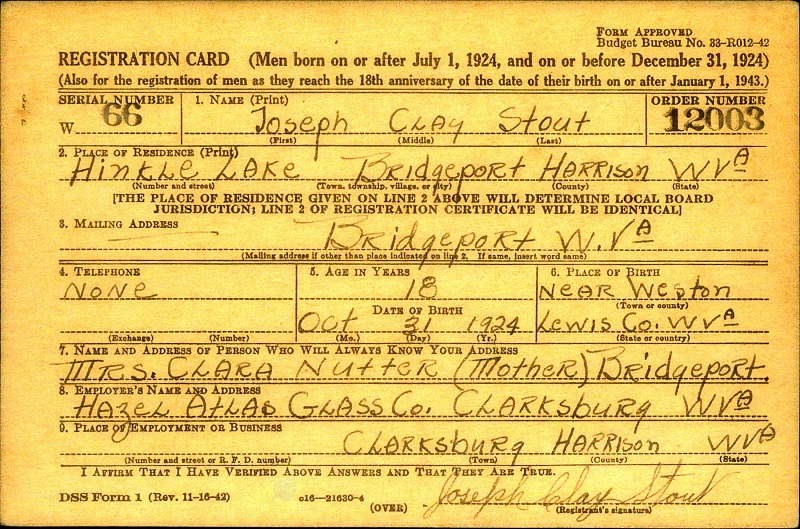 FORM APPROVED
Budget Bureau No. 33-R012-42
REGISTRATION CARD (Men born on or after July 1, 1924, and on or before December 31, 1924)
(Also for the registration of men as they reach the 18th anniversary of the date of their birth on or after January 1, 1943.)
SERIAL NUMBER 1. NAME (Print) ORDER NUMBER
W 66 Joseph CLAY Stout 12003
(First) (Middle) (Last)
2. PLACE OF RESIDENCE (Print)
HINKLE LAKE Bridgeport HARRISON W VA
(Number and street) (Town, township, village, or city) (County) (State)
[THE PLACE OF RESIDENCE GIVEN ON LINE 2 ABOVE WILL DETERMINE LOCAL BOARD
JURISDICTION; LINE 2 OF REGISTRATION CERTIFICATE WILL BE IDENTICAL]
3. MAILING ADDRESS
Bridgeport W. VA
(Mailing address if other than place indicated on line 2. If same, insert word same)
4. TELEPHONE 5. AGE IN YEARS 6. PLACE OF BIRTH
NONE 18 NEAR Weston
DATE OF BIRTH (Town or county)
Oct 31 1924 Lewis Co. W VA
(Exchange) (Number) (Mo.) (Day) (Yr.) (State or country)
7. NAME AND ADDRESS OF PERSON WHO WILL ALWAYS KNOW YOUR ADDRESS
MRS. CLARA Nutter (Mother) Bridgeport.
8. EMPLOYER'S NAME AND ADDRESS
HAZEL ATLAS GLASS Co. CLARKSBURG W VA
9. PLACE OF EMPLOYMENT OR BUSINESS
CLARKSBURG HARRISON W VA
(Number and street or R. F. D. number) (Town) (County) (State)
I AFFIRM THAT I HAVE VERIFIED ABOVE ANSWERS AND THAT THEY ARE TRUE.
DSS Form 1 (Rev. 11-16-42) c16—21630-4 Joseph Clay Stout
(OVER) (Registrant's signature)